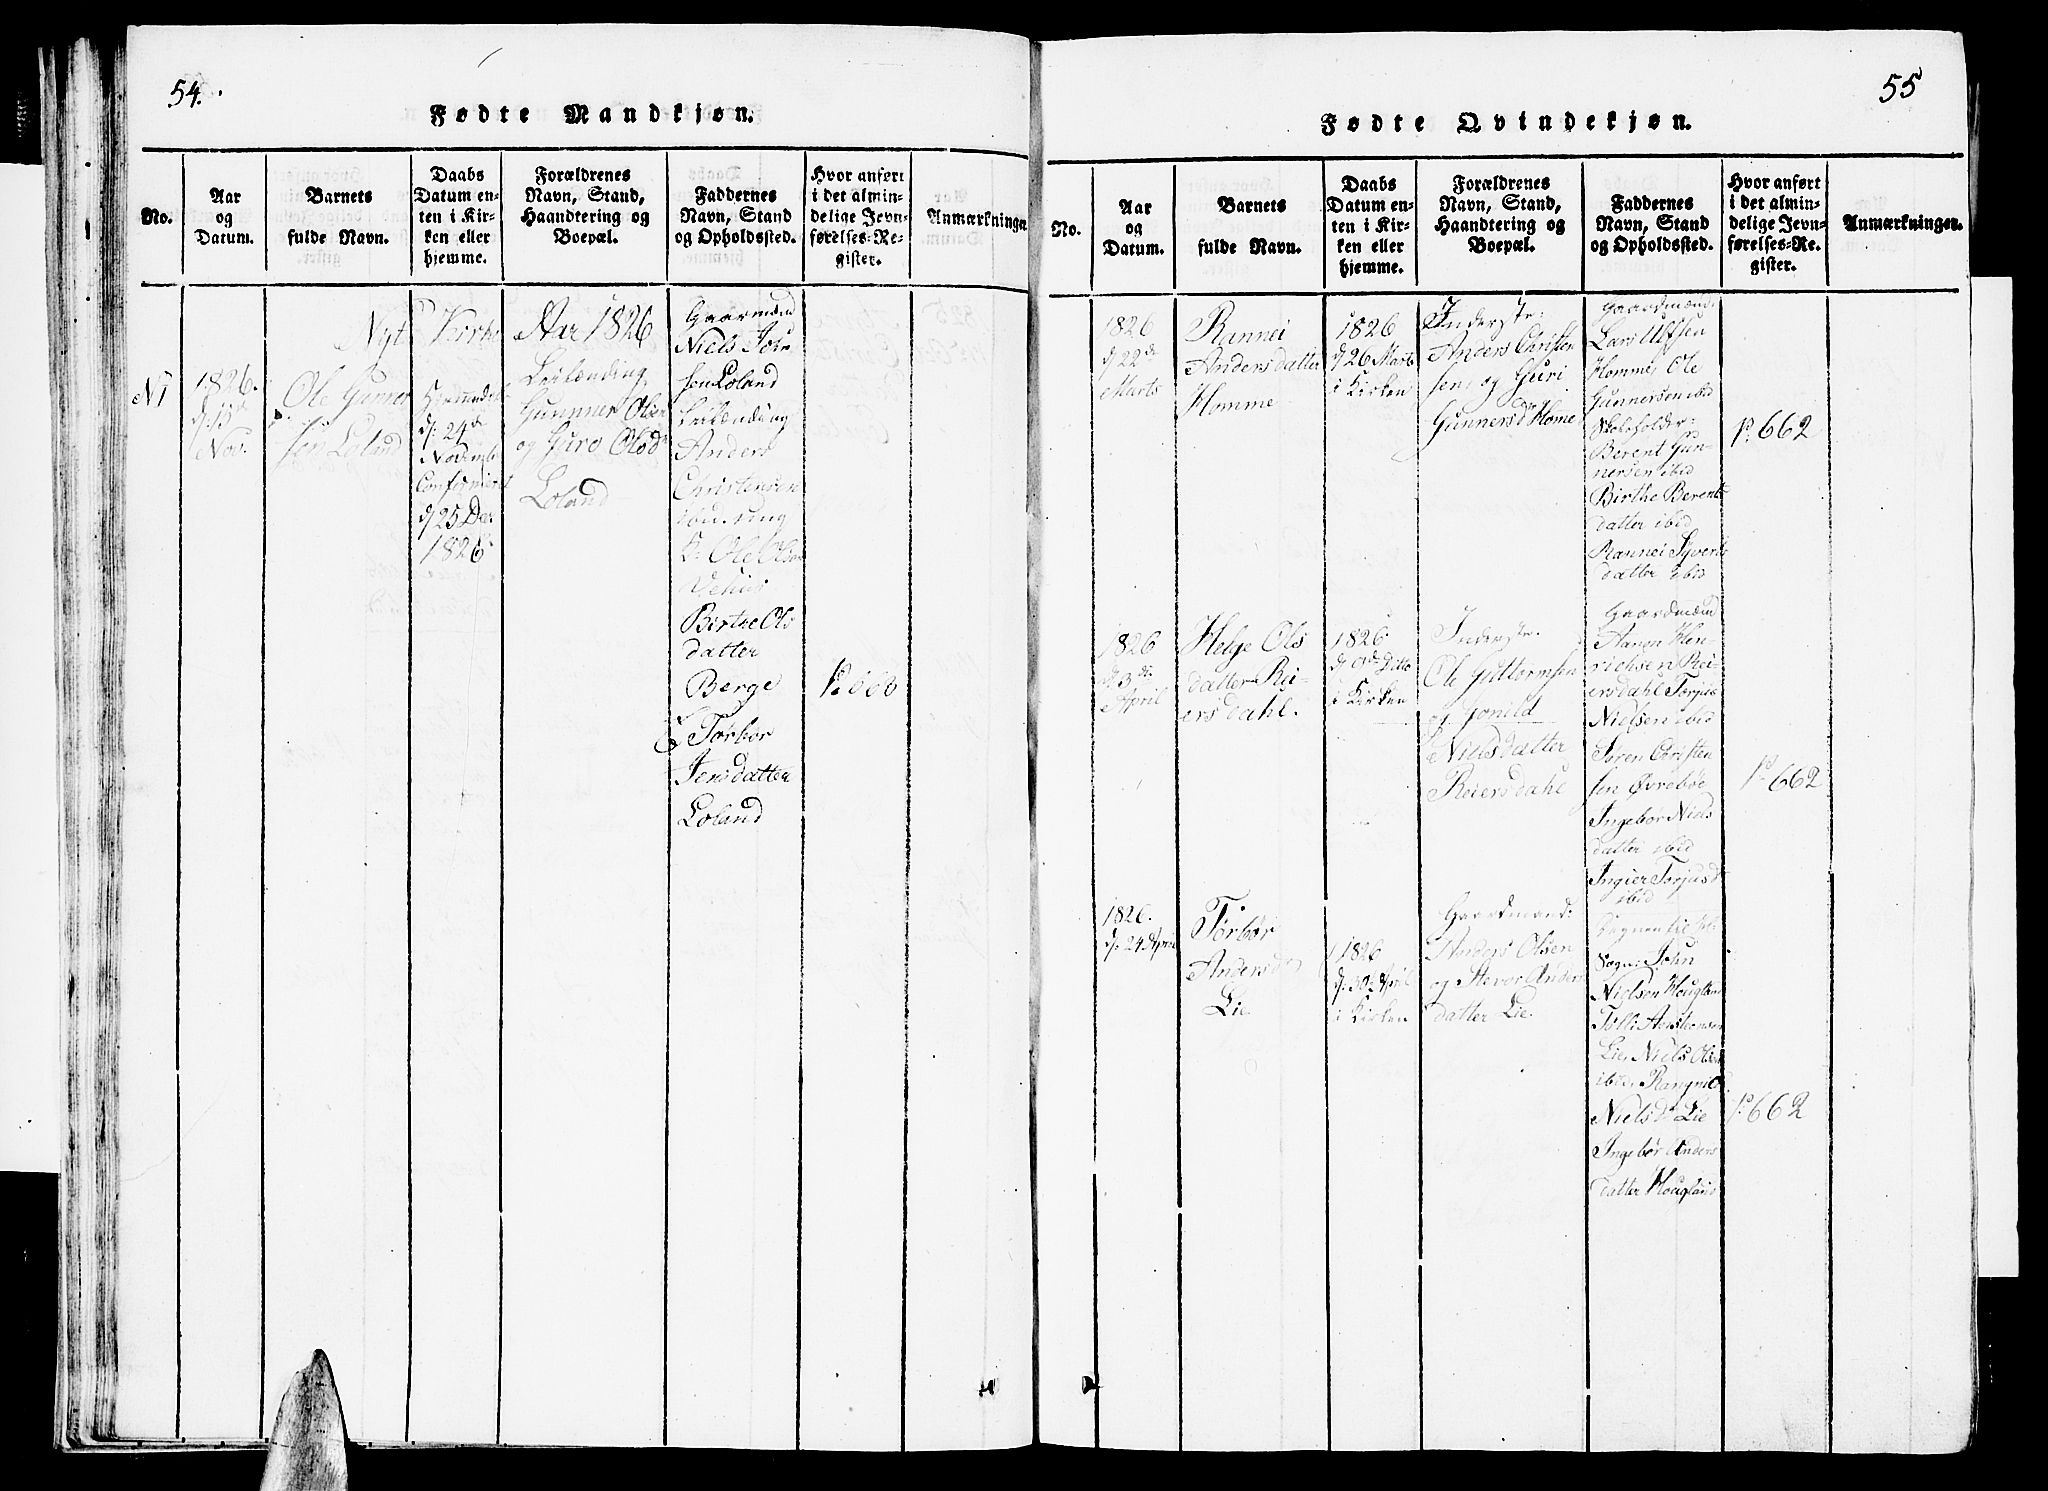 54.
Fødte Mandkjøn.
No.
Aar
og
Datum.
Barnets
fulde Navn.
Daabs
Datum en-
ten i Kir-
ken eller
hjemme.
Forældrenes
Navn, Stand,
Haandtering og
Boepæl.
Faddernes
Navn, Stand
og Opholdssted.
Hvor anført
i det almin-
delige Jevn-
førelses-Re-
gister.
Anmærkninger
Nyt Kirke Aar 1826
N1
1826.
Nov.
Ole Gunner
sen Loland
Hjemmedøbt
d: 24de
Novembr
Confirmert
d 25 Dec.
1826
Leilænding
Gunner Olsen
og Guro Olsd
Loland
Gaarmænd
Niels John
sen Loland
Leilænding
Anders
Christensen
ibid. ung
K. Ole Olsen
Vehus
Birthe Ols
datter
Berge
Tørbør
Jensdatter
Loland
55
Fødte Qvindekjøn.
No.
Aar
og
Datum.
Barnets
fulde Navn.
Daabs
Datum en-
ten i Kir-
ken eller
hjemme.
Forældrenes
Navn, Stand,
Haandtering og
Boepæl.
Faddernes
Navn, Stand
og Opholdssted.
Hvor anført
i det almin-
delige Jevn-
førelses-Re-
gister.
Anmærkninger.
1826
d 22de
Marts
Rannei
Andersdatter
Homme
1826
d 26 Marts
i Kirken
Inderste:
Anders Christen
sen, og Guri
Gunnersdr Home
Gaardmænd:
Lars Ulfsen
Homme, Ole
Gunnersen ibid
Skoleholder:
Berent Gun-
nersen ibid
Birthe Berents
datter ibid
Rannei Syverts
datter ibid
P. 662
1826
d: 3de
April
Helge Ols
datter Rei-
ersdahl.
1826
i Kirken
Inderste.
Ole Guttormsen
og Gonild
Nielsdatter
Reiersdahl
Gaardmænd
Aanon Hen-
richsen Rei-
ersdahl Torjus
Nielsen ibid
Søren Christen
sen Øvrebøe
Ingebør Niels
datter ibid
Ingier Torjusd
ibid
P. 662
1826.
d: 24 April
Tørbør
Andersdr
Lie
1826
d: 30 April
i Kirken
Gaardmand:
Anders Olsen
og Stevor Anders
datter Lie.
Sogn: John
Nielsen Hougland
Tolli Aanstensen
Lie, Niels Olsen
ibid, Rangnild
Nielsdr Lie
Ingebør Anders
datter Hougland
P. 662